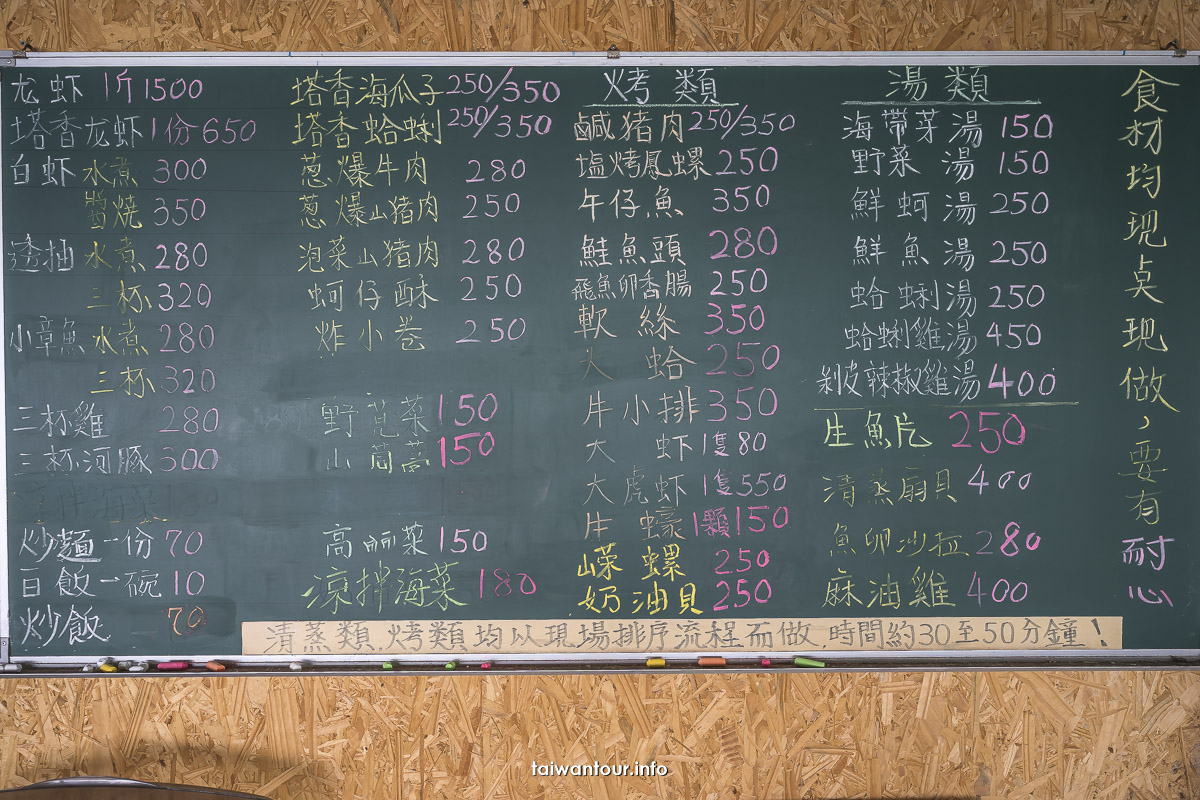 龙虾 1斤 1500
塔香龙虾 1份 650
白虾 水煮 300
醬燒 350
透抽 水煮 280
三杯 320
小章魚 水煮 280
三杯 320
三杯雞 280
三杯河豚 300
炒麵一份 70
白飯一碗 10
炒飯 70
塔香海瓜子 250/350
塔香蛤蜊 250/350
葱爆牛肉 280
葱爆山猪肉 250
泡菜山猪肉 280
蚵仔酥 250
炸小卷 250
野莧菜 150
山茼蒿 150
高丽菜 150
凉拌海菜 180
烤類
鹹猪肉 250/350
塩烤鳳螺 250
午仔魚 350
鮭魚頭 280
飛魚卵香腸 250
軟絲 350
大蛤 250
牛小排 350
大虾 1隻 80
大虎虾 1隻 550
生蠔 1顆 150
嶸螺 250
奶油貝 250
湯類
海帶芽湯 150
野菜湯 150
鮮蚵湯 250
鮮魚湯 250
蛤蜊湯 250
蛤蜊雞湯 450
剝皮辣椒雞湯 400
生魚片 250
清蒸扇貝 400
魚卵沙拉 280
麻油雞 400
食材均现点现做，要有耐心
清蒸類.烤類均以現場排序流程而做.時間約30至50分鐘！
taiwantour.info